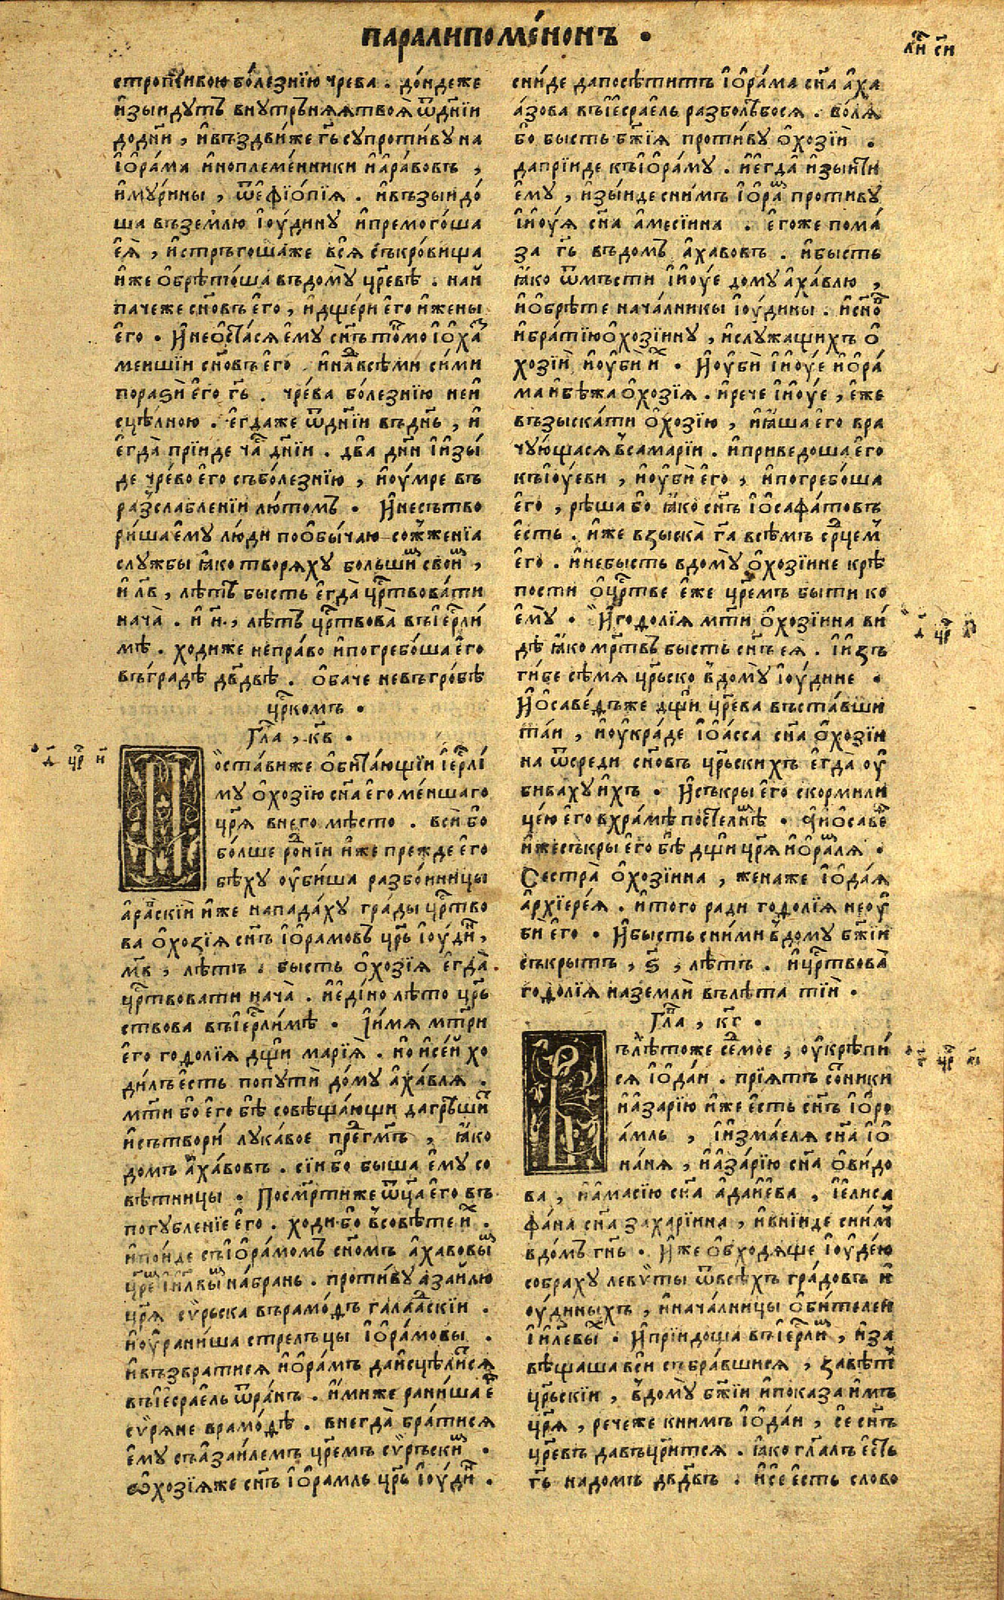 паралипоме́нонъ .
стропти́вою бо́лезнїю чре́ва . до́ндеже
и҆зыи́дутъ вну́трьняѧ твоѧ̀ ѿдні́и
додні́и , и҆въздви́же гь҃ супроти́ву на
і҆ѻ҆ра́ма и҆ноплеме́нники и҆а҆ра́вовъ ,
и҆му́рины , ѿе҆фїо́пїѧ . и҆възыидо́
ша въземлю і҆оу́дину и҆премого́ша
е҆ѧ̀ , и҆стръго́шаже всѧ̀ съкро́вища
и҆же ѻ҆брѣто́ша въдому̀ цр҃евѣ . най
пачеже сн҃овъ его̀ , и҆дще́ри е҆го̀ и҆жены̀
е҆го̀ . И҆неѡ҆ста́сѧ е҆му̀ сн҃ъ то́кмо і҆ѻ҆ха́з
менши́и сн҃овъ е҆го̀ . и҆над всѣми си́ми
поразѝ е҆го̀ гь҃ . чре́ва бо́лезнїю неи
сцѣ́лною . е҆гда́же ѿдні́и въдн҃ь , и҆
е҆гда̀ прїи́де ча́с дні́и . два̀ дни̑ і҆изы́
де чре́во е҆го̀ съболезнїю , и҆оу́мре въ
разслабле́нїи лю́томъ . И҆несътво
ри́ша е҆му̀ лю́ди поѻ҆бы́чаю сожже́нїа
слу́жбы ꙗ҆ко творѧ́ху бо́льшим свои́м ,
и҆ л҃в , лѣ́тъ бысть е҆гда̀ цр҃твова́ти
нача̀ . и҆ и҃ , лѣ́тъ цр҃твова̀ въі҆ер҃ли
мѣ . ходи́же непра́во и҆погребо́ша е҆го̀
въгра́дѣ дв҃двѣ . ѻ҆ба́че не въгро́бѣ
цр҃комъ .
Гла̀ , к҃в .
Поста́виже ѻ҆бита́ющїи і҆ер҃лі
му ѻ҆хозі́ю сн҃а е҆го̀ ме́ншаго
цр҃ѧ внего̀ мѣ́сто . всѝ бо
бо́лше ро́дніи и҆же пре́жде е҆го̀
бѣ́ху оу҆би́ша разбо́йницы
а҆ра́пскїи и҆же напада́ху гра́ды цр҃тво
ва ѻ҆хозі́ѧ сн҃ъ і҆ѻ҆ра́мовъ цр҃ь і҆оу́дин ,
м҃в , лѣ́тъ . бы́сть ѻ҆хозі́ѧ е҆гда̀
цр҃твова́ти нача̀ . и҆е҆ди́но лѣ́то цр҃ь
ствова въі҆ер҃ли́мѣ . І҆имѧ мт҃ри
е҆го̀ годолі́ѧ дщи́ марі́ѧ . но и҆се́й хо
ди́лъ е҆сть попутѝ до́му а҆ха́влѧ .
мт҃и бо е҆го̀ бѣ̀ совѣща́ющи дагрѣши́т
и҆сътвори́ лука́вое пред гм҃ъ , ꙗ҆ко
домъ а҆ха́вовъ . сїи́ бо бы́ша е҆му̀ со
вѣ́тницы . Посме́ртиже ѿц҃а е҆го̀ въ
погубле́нїе е҆го̀ . ходи́ бо всовѣ́те и҆х .
и҆по́иде съі҆ѻ҆ра́момъ сн҃омъ а҆ха́вовым
цр҃ем і҆и҃лвым на́брань . проти́ву а҆заи́лю
цр҃ѧ сѵ́рьска въра́мофъ галаа́дскїи .
и҆оу҆рани́ша стре́лцы і҆ѻ҆ра́мовы .
и҆възврати́сѧ и҆ѻ҆ра́мъ даи҆сцѣли́тсѧ
въі҆есра́ель ѿра́нъ . и҆ми́же рани́ша е҆го
сѵ́рѧне врамо́фѣ . внегда̀ бра́тисѧ
е҆му̀ съа҆заи́лемъ цр҃емъ сѵ́рьским .
Ѻ҆хозі́ѧже сн҃ъ і҆ѻ҆ра́мль цр҃ь і҆оу́дин .
сни́де дапосѣти́тъ і҆ѻ҆ра́ма сн҃а а҆ха
а́зова въі҆есра́ель разболѣ́босѧ . во́лѧ
бо бы́сть бж҃їѧ проти́ву ѻ҆хозі́и .
дапрїи́де къі҆ѻ҆ра́му . и҆е҆гда̀ и҆зыи́ти
е҆му̀ , и҆зы́иде сни́мъ і҆ѻ҆ра́м проти́ву
і҆иоу́ѧ сн҃а а҆месі́ина . е҆го́же пома́
за гь҃ въдо́мъ а҆ха́вовъ . и҆бы́сть
ꙗ҆ко ѿмьстѝ і҆иоу́е до́му а҆ха́влю ,
и҆ѻ҆брѣ́те нача́лникы і҆оу́дины . и҆сн҃овъ
и҆бра́тїю ѻ҆хозі́ину , и҆служа́щихъ ѻ҆
хозі́и , и҆оу҆бѝ и҆х . И҆оу҆бѝ і҆иоу́е и҆ѻ҆ра́
ма и҆бѣжа̀ ѻ҆хозі́ѧ . и҆речѐ і҆иоу́е , е҆же
възыска́ти ѻ҆хозі́ю , и҆ꙗ҆́ша е҆го̀ вра
чу́ющасѧ всамарі́и . и҆приведо́ша е҆го̀
къі҆оу́еви , и҆оу҆бѝ е҆го̀ , и҆погребо́ша
е҆го̀ , рѣ́ша бо ꙗ҆ко сн҃ъ і҆ѻ҆сафа́товъ
е҆сть . и҆же взыска̀ га҃ всѣ́мъ ср҃дцем
е҆го̀ . и҆небы́сть вдому̀ ѻ҆хозі́ине крѣ́
пости ѻ҆цр҃тве е҆же цр҃емъ бы́ти ко
е҆му̀ . И҆годолі́ѧ мт҃и ѻ҆хозі́ина ви́
дѣ ꙗ҆ко мр҃твъ бы́сть сн҃ъ еѧ̀ . і҆изъ
ги́бе сѣ́мѧ цр҃ьско вдому̀ і҆оу́дине .
И҆ѻ҆саве́дъже дщи́ цр҃ева въста́вши
та́и , и҆оу҆кра́де і҆ѻ҆а́сса сн҃а ѻ҆хозі́и
на ѿсредѝ сн҃овъ цр҃ьскихъ е҆гда̀ оу҆
бива́ху и҆хъ . И҆съкры̀ е҆го̀ скорми́ли
цею е҆го̀ вхра́мѣ посте́лнѣ . и҆ѻ҆саве́
и҆жесъкры̀ е҆го̀ бѣ̀ дщи́ цр҃ѧ и҆ѻ҆ра́млѧ .
Сестра̀ ѻ҆хозі́ина , жена́же і҆ѻ҆да́ѧ
а҆рхїере́ѧ . и҆того̀ ра́ди годолі́ѧ неоу҆
бѝ е҆го̀ . И҆бы́сть сни́ми вдому̀ бж҃їи
съкры́тъ , ѕ҃ , лѣ́тъ . и҆цр҃твова
годолі́ѧ назе́мли вълѣ́та тїи̑ .
Гла̀ , к҃г .
Вълѣ́тоже се́дмое , оу҆крѣпи́
сѧ і҆ѻ҆да́и . прїѧ́тъ со́тники
и҆а҆за́рїю и҆же е҆сть сн҃ъ і҆ѻ҆ро
а́мль , і҆измаи́елѧ сн҃а і҆ѻ҆
на́нѧ , и҆а҆за́рїю сн҃а ѻ҆ви́до
ва , и҆а҆маси́ю сн҃а а҆даи́ева , і҆е҆лиса
фа́на сн҃а заха́рїина , и҆вни́иде сни́ми
вдо́мъ гн҃ь . И҆же ѻ҆бходѧ́ще і҆оуде́ю
собра́ху левѵ́ты ѿвсѣ́хъ гра́довъ и҆
оу́диныхъ , и҆нача́лницы ѻ҆би́телей
і҆и҃левых . И҆прїидо́ша въі҆ер҃лим , и҆за
вѣща́ша всѝ събра́вшисѧ , завѣ́тъ
цр҃ьскїи , вдому̀ бж҃їи и҆показа̀ и҆мъ
цр҃ѧ , рече́же кни́мъ і҆ѻ҆да́и , се́ сн҃ъ
цр҃евъ давъцр҃и́тсѧ . ꙗ҆ко гл҃алъ е҆сть
гь҃ надо́мъ дв҃двъ . и҆се́ е҆сть сло́во